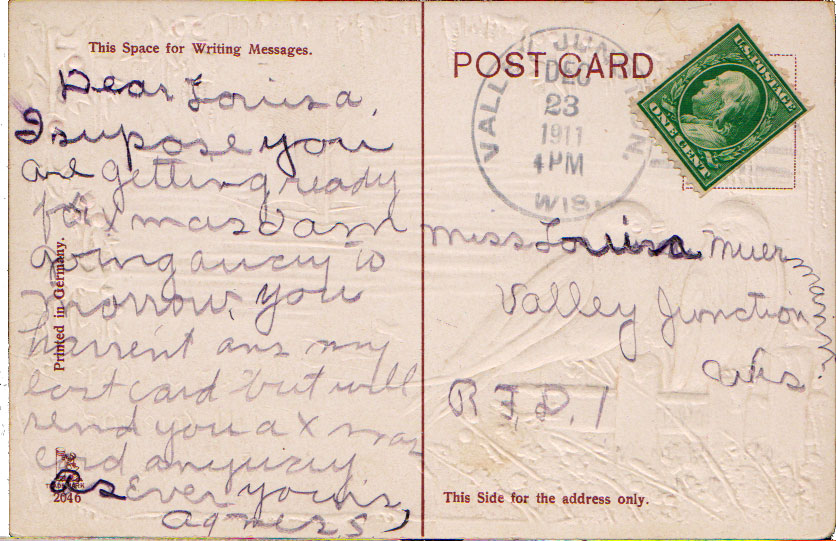 This Space for Writing Messages.
Dear Louisa,
I supose you
are getting ready
for xmas I am
going away to
morrow, you
harrent ans my
last card but will
send you a X mas
card anyway
as Ever yours,
Agness
Printed in Germany.
TRADE MARK
2046
POST CARD
VALLEY JUNCTION,
DEC
23
1911
4 PM
WIS.
U.S. POSTAGE
ONE CENT
Miss Louisa Muermann
Valley Junction
Wis.
R.F.D. 1
This Side for the address only.